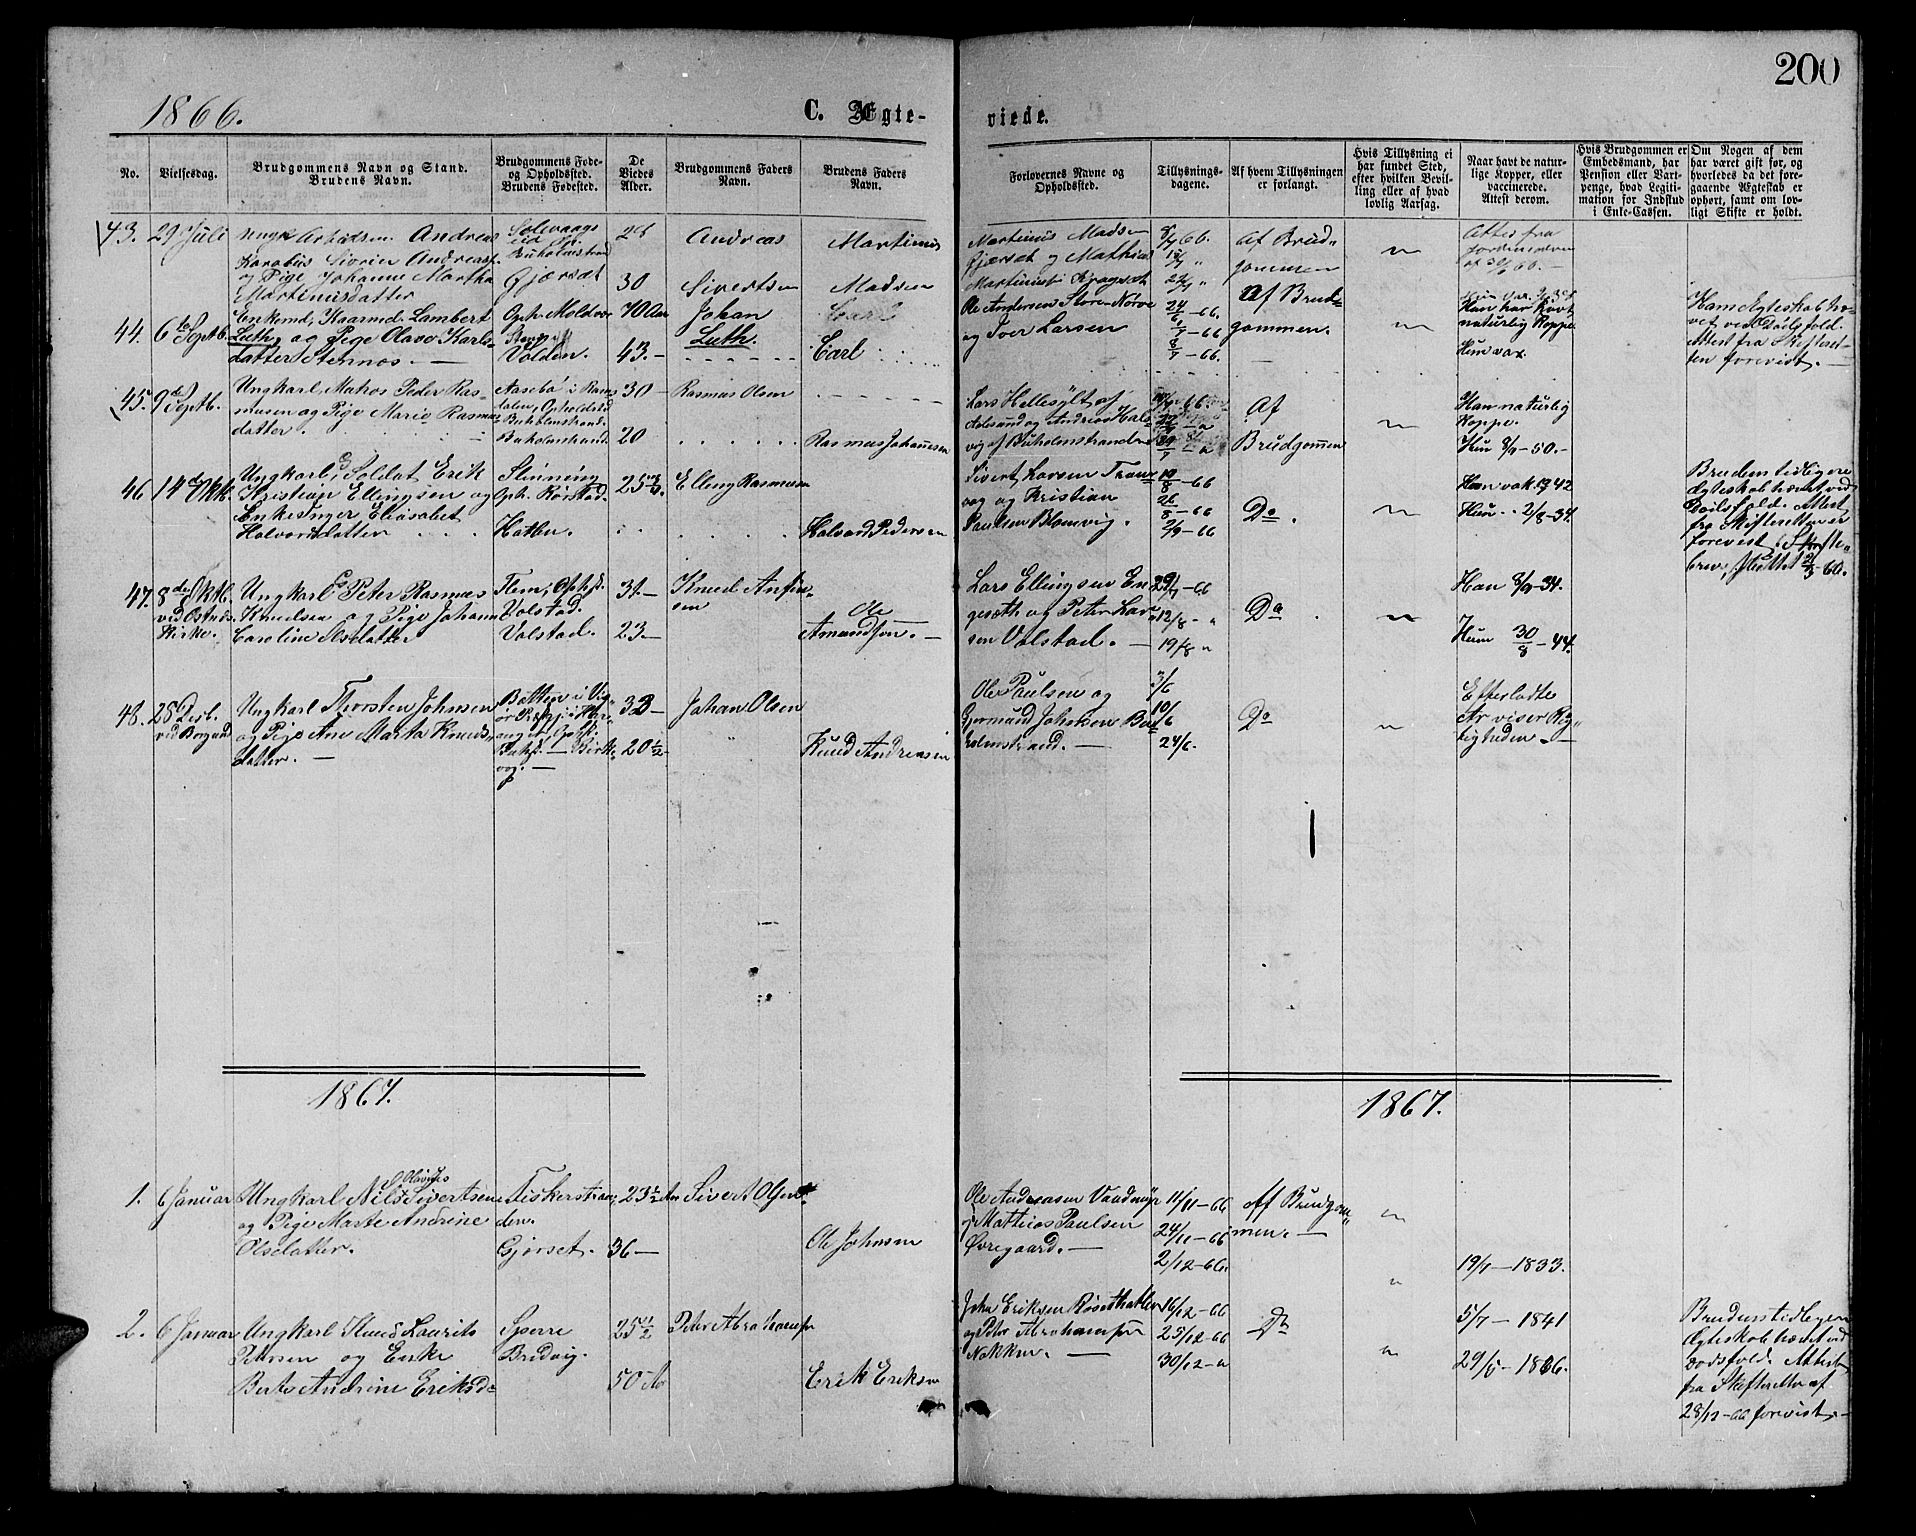 200
1866.
C. Ægte-
viede.
No.
Vielsesdag.
Brudgommens Navn og Stand.
Brudens Navn.
Brudgommens Føde-
og Opholdssted.
Brudens Fødested.
De
Viedes
Alder.
Brudgommens Faders
Navn.
Brudens Faders
Navn.
Forlovernes Navne og
Opholdssted.
Tillysnings-
dagene.
Af hvem Tillysningen
er forlangt.
Hvis Tillysning ei
har fundet Sted,
efter hvilken Bevil-
ling eller af hvad
lovlig Aarsag.
Naar havt de natur-
lige Kopper, eller
vaccinerede.
Attest derom.
Hvis Brudgommen er
Embedsmand, har
Pension eller Vart-
penge, hvad Legiti-
mation for Indskud
i Enke-Cassen.
Om Nogen af dem
har været gift før, og
hvorledes da det fore-
gaaende Ægteskab er
ophørt, samt om lov-
ligt Skifte er holdt.
43.
29 Juli
Andreas
Andreass.
og Pige Johanne Martha
Martinusdatter
Buholmstrand
Gjærsæt
28
30
Andreas
Sivertsen
Martinus
Madsen
Martinus Madsen
Gjærsæt og Mathias
Martinus Kragsæt
8/7 66.
15/7 "
22/7 "
Af Brud-
gommen
Attest fra
44.
6te Septb.
Enkemd. Kaarmd. Lambert
Luth og Pige Olava Karls-
datter Stennes.
Oph. Moldvær
Volden.
70 Aar
43.-
Johan
Luth.
Carl
Ole Andersen Store Nørve
og Iver Larsen
24/6 -66.
1/7 -66
8/7 -66.
af Brud-
gommen.
Han har havt
naturlig Koppe
Hun vax.
Hans Egteskab hæ-
vet ved Dødsfald.
Attest fra Skifteret-
ten forevist.
45.
9de Septb.
Ungkarl, Matros Peder Ras-
musen og Pige Marie Rasmus-
datter.
Aasebø i Roms-
dalen, Opholdsted
Buholmstrand.
Buholmstrand.
30-
20
Rasmus Olsen
Rasmus Johannesen
Lars Hellesylt af
Aalesund og Andreas Hals-
vig af Buholmstranden
22/7
29/7
Af
Brudgommen
Han naturlig
Koppe.
Hun 8/9 -50.-
46
14de Oktb.
Ungkarl, Soldat Erik
Kristian Ellingsen og
Enke Inger Eliasabet
Halvorsdatter
Slinning
Oph. Kørstad.
Hatlen.
25
Elling Rasmusen
Halvord Pedersen
Sivert Larsen Tran-
vag og Kristian
Paulsen Blomvig.
19/8 -66
26/8 -66
2/9 -66
Do.
Han vak. 1942
Hun .. 2/8 -34.
Brudens tidligere
Egteskab hævet ved
Dødsfald. Attest
fra Skifteretten er
forevist. Skifte-
brev, sluttet 2/3 60.
47.
8de Oktb.
ved Ostnæs
Kirke.
Ungkarl Peter Rasmus
Knudsen og Pige Johanne
Caroline Olsdatter
Flem, Opholdst.
Valstad.
Valstad.
31-
23-
Knud Anfin-
sen
Ole
Amundsøn.-
Lars Ellingsen En-
gesæth og Peter Lar-
sen Valstad.-
29/7 -66
12/8 - "
19/8 "
Do.
Han 8/9 -34.
Hun 30/8 -44.
48.
28 Decb.
ved Borgund
Ungkarl Thorsten Johnsen
og Pige Ane Marta Knuds-
datter.-
32-
20 1/2
Johan Olsen
Knud Andreasen
Ole Paulsen og
Gurmund Johnsen Bu-
holmstrand.-
3/6
10/6
24/6.
Do
Efterladte
Ar viser Rig-
tigheden.-
1867.
1867.
1.
6 Januar
Olavus
Ungkarl Nils Sivertsen
og Pige Marte Andrine
Olsdatter.
Fiskerstran-
den.
Gjørset.
23 1/2 Ar
36-
Sivert Olsen
Ole Johnsen
Ole Andreasen Vaadnøjr
og Mathias Paulsen
Øvregaard.-
11/11 -66
24/11 -66
2/12 -66.
aff Brudgom-
men.-
19/7 - 1833.
2.
6 Januar
Ungkarl Knud Laurits
Petersen og Enke
Berte Andrine Eriksd-
Sperre
Bredvig.
25 1/2
50 Ar
Peter Abrahamsøn
Erik Eriksen
John Eriksen Røsethatlen
og Peter Abrahamsøn
Nakken.-
16/12 -66
25/12 -66
30/12 - "
Do
5/7 - 1841
29/5 - 1816.
Brudens tidligere
Egteskab hævet ved
Dødsfald. Attest
fra Skifteretten af
28/12 -66 forevist.-